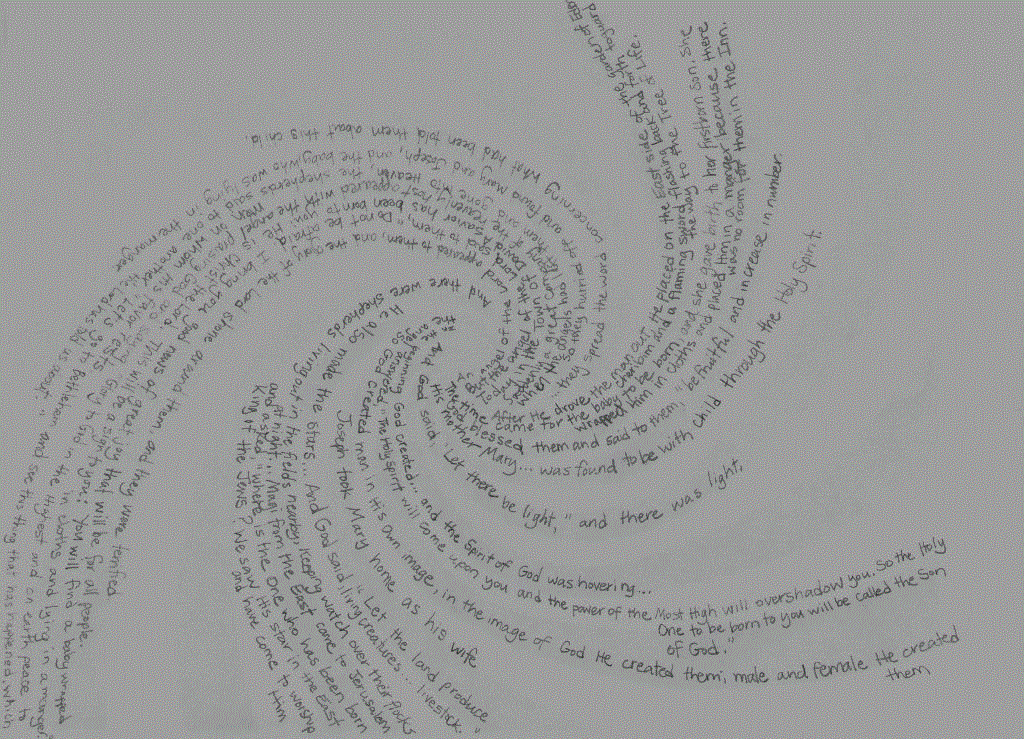 the garden of Eden
to guard
After He drove the man out He placed on the East side of the
cherubim and a flaming sword flashing back and forth
the way to the Tree of Life.
The time came for the baby to be born, and she gave birth to her firstborn son. She
wrapped Him in cloths and placed Him in a manger because there
was no room for them in the Inn.
God blessed them and said to them, "be fruitful and increase in number.
His mother Mary... was found to be with child through the Holy Spirit.
And God said "Let there be light," and there was light.
In the beginning God created... and the Spirit of God was hovering...
the angel answered "The Holy Spirit will come upon you and the power of the Most High will overshadow you. So the Holy
One to be born to you will be called the Son
of God."
So God created man in His own image, in the image of God He created them; male and female He created
them
Joseph took Mary home as his wife
He also made the stars... And God said "Let the land produce
living creatures... livestock."
And there were shepherds living out in the fields nearby, keeping watch over their flocks
at night.
Magi from the East came to Jerusalem
and asked, "where is the One who has been born
King of the Jews? We saw His star in the East
and have come to worship
Him
An angel of the Lord appeared to them, and the glory of the Lord shone around them, and they were terrified
But the angel said to them, "Do not be afraid. I bring you good news of great joy that will be for all people.
Today in the Town of David a Savior has been born to you; He is Christ the Lord. This will be a sign to you: You will find a baby wrapped
in cloths and lying in a manger
Suddenly a great company of the heavenly host appeared with the angel praising God and saying "Glory to God in the highest and on earth peace to
men on whom His favor rests"
When the angels had left them and gone into Heaven, the shepherds said to one another "Let's go to Bethlehem and see this thing that has happened, which
the Lord has told us about."
...So they hurried off and found Mary and Joseph, and the baby who was lying in the manger
... they spread the word concerning what had been told them about this child.